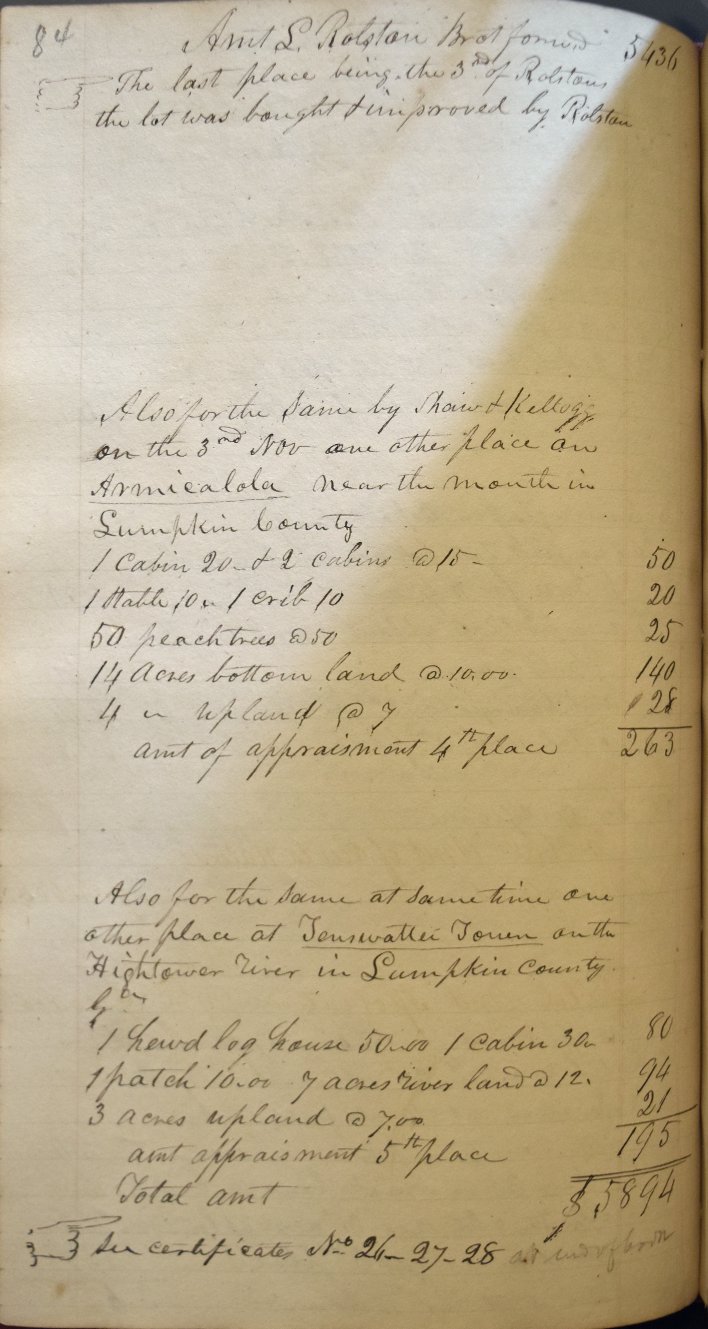 84 Amt L. Rolston Brot forwd 5436
The last place being the 3rd of Rolstons
the lot was bought & improved by Rolston
Also for the Same by Shaw & Kellogg
on the 3nd Nov one other place on
Armicalola near the mouth in
Lumpkin County
1 Cabin 20- & 2 cabins @ 15- 50
1 Stable 10 " 1 crib 10 20
50 peachtrees @ 50 25
14 Acres bottom land @ 10.00. 140
4 " upland @ 7 28
amt of appraisment 4th place 263
Also for the same at same time one
other place at Tenswattee Town on the
Hightower River in Lumpkin County.
1 hewd log house 50.00 1 cabin 30 80
1 patch 10.00 7 acres River land @ 12. 94
3 acres upland @ 7.00 21
amt appraisment 5th place 195
Total amt $5894
See certificates No 26-27-28 at end of book